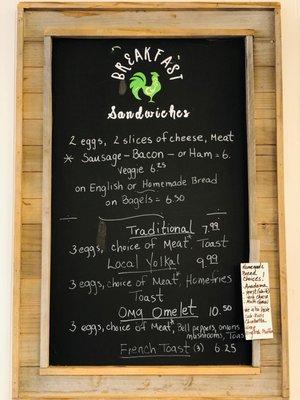 BREAKFAST
Sandwiches
2 eggs, 2 slices of cheese, Meat
* Sausage - Bacon - or Ham = 6.
Veggie 6.25
on English or Homemade Bread
on Bagels = 6.50
Traditional 7.99
3 eggs, choice of Meat, Toast
Local Yolkal 9.99
3 eggs, choice of Meat, Homefries
Toast
Omg Omelet 10.50
3 eggs, choice of Meat, Bell peppers, onions
mushrooms, Toast
French Toast (3) 6.25
Homemade
Bread
Choices:
Anadama